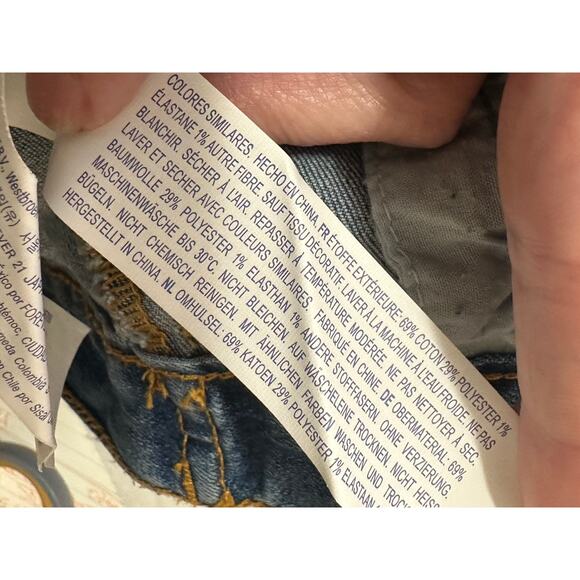 COLORES SIMILARES. HECHO EN CHINA. FR ÉTOFFE EXTÉRIEURE: 69% COTON 29% POLYESTER 1%
ÉLASTANE 1% AUTRE FIBRE. SAUF TISSU DÉCORATIF. LAVER À LA MACHINE À L'EAU FROIDE. NE PAS
BLANCHIR. SÉCHER À L'AIR. REPASSER À TEMPÉRATURE MODÉRÉE. NE PAS NETTOYER À SEC.
LAVER ET SÉCHER AVEC COULEURS SIMILAIRES. FABRIQUÉ EN CHINE. DE OBERMATERIAL: 69%
BAUMWOLLE 29% POLYESTER 1% ELASTHAN 1% ANDERE STOFFFASERN. OHNE VERZIERUNG.
MASCHINENWÄSCHE BIS 30°C. NICHT BLEICHEN. AUF WÄSCHELEINE TROCKNEN. NICHT HEISS
BÜGELN. NICHT CHEMISCH REINIGEN. MIT ÄHNLICHEN FARBEN WASCHEN UND TROCK
HERGESTELLT IN CHINA. NL OMHULSEL: 69% KATOEN 29% POLYESTER 1% ELASTAN
Westbro
VER 21
por FORE
CIUDA
meda Colombia
Chile por Sisal